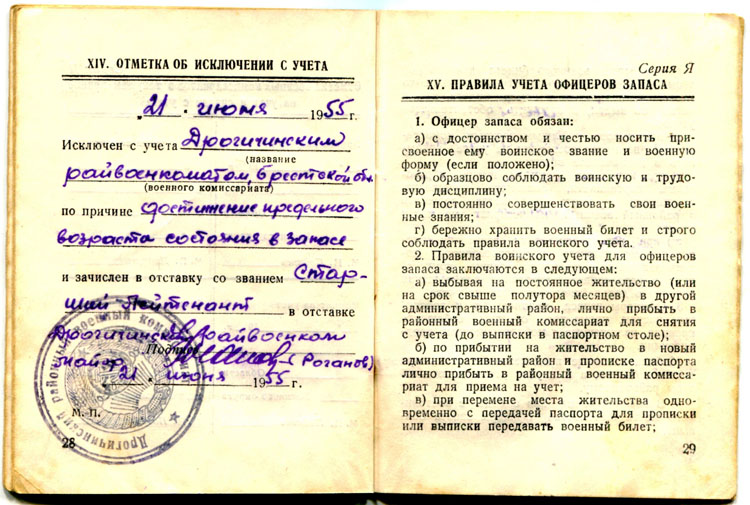 XIV. ОТМЕТКА ОБ ИСКЛЮЧЕНИИ С УЧЕТА
„21 . июня 1955 г.
Исключен с учета Дрогичинским
(название
райвоенкоматом, Брестской об.
(военного комиссариата)
по причине достижение предельного
возраста состояния в запасе
и зачислен в отставку со званием Стар-
ший лейтенант в отставке
Дрогичинский райвоенком
майор Подпись (Роганов)
„21 . июня 1955 г.
М. П.
Дрогичинский районный военный
28
Серия Я
XV. ПРАВИЛА УЧЕТА ОФИЦЕРОВ ЗАПАСА
1. Офицер запаса обязан:
а) с достоинством и честью носить при-
своенное ему воинское звание и военную
форму (если положено);
б) образцово соблюдать воинскую и трудо-
вую дисциплину;
в) постоянно совершенствовать свои воен-
ные знания;
г) бережно хранить военный билет и строго
соблюдать правила воинского учета.
2. Правила воинского учета для офицеров
запаса заключаются в следующем:
а) выбывая на постоянное жительство (или
на срок свыше полутора месяцев) в другой
административный район, лично прибыть в
районный военный комиссариат для снятия
с учета (до выписки в паспортном столе);
б) по прибытии на жительство в новый
административный район и прописке паспорта
лично прибыть в районный военный комисса-
риат для приема на учет;
в) при перемене места жительства одно-
временно с передачей паспорта для прописки
или выписки передавать военный билет;
29